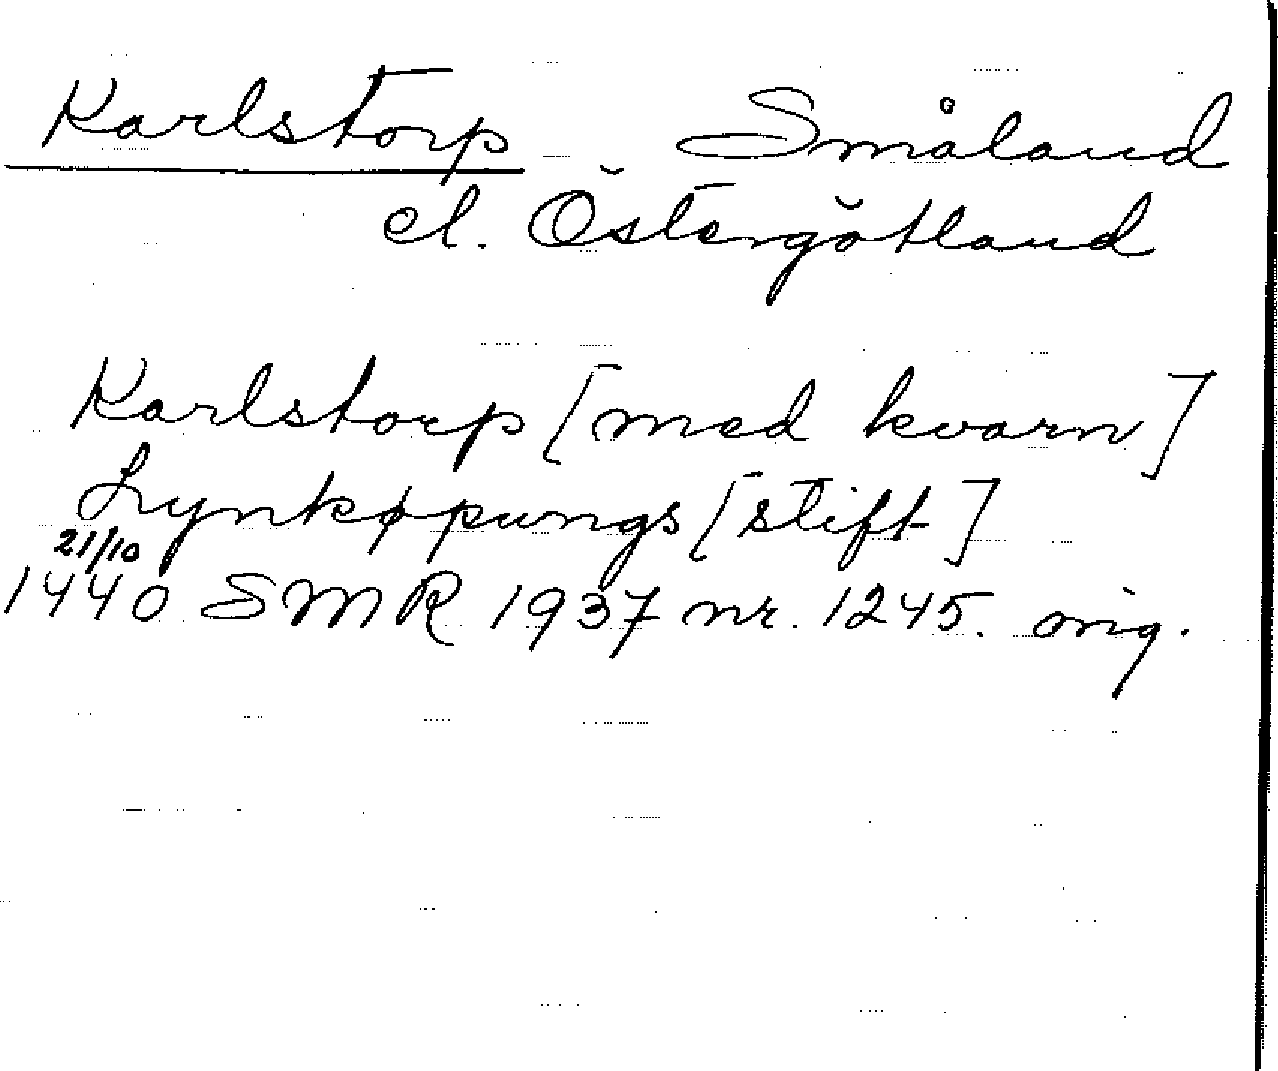 Karlstorp Småland
el. Östergötland
Karlstorp [med kvarn]
Lynkøpungs [stift]
21/10
1440 SMR 1937 nr. 1245. orig.